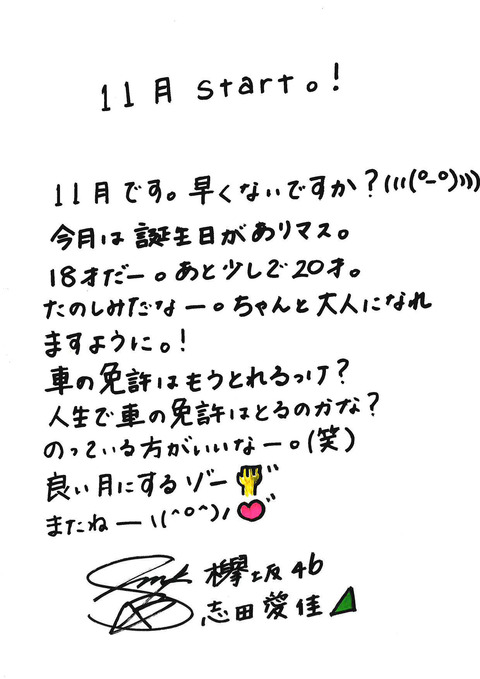 11月 start。!
11月です。早くないですか?((((°-°)))
今月は誕生日がありマス。
18才だー。あと少しで20才。
たのしみだなー。ちゃんと大人になれ
ますように。!
車の免許はもうとれるっけ?
人生で車の免許はとるのかな?
のっている方がいいなー。(笑)
良い月にするゾー
またねー\(^o^)/
欅坂46
志田愛佳